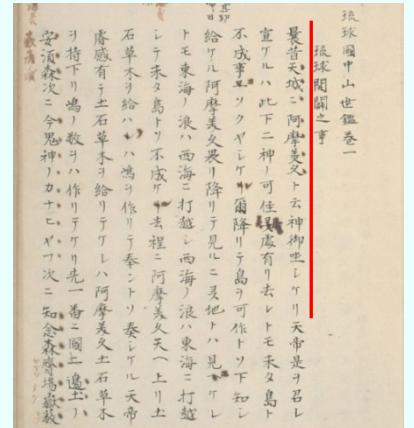 琉球國中山世鑑巻一
琉球開闢之事
曩昔天城ニ阿摩美久ト云神御坐シケリ天帝是ヲ召シ
宣ケルハ此下ニ神ノ可住靈處有リ去レトモ未タ島ト
不成事コソクヤシケレ爾降リテ島ヲ可作トソ下知シ
給ケル阿摩美久畏リ降リテ見ルニ靈地トハ見ヘケレ
トモ東海ノ浪ハ西海ニ打越シ西海ノ浪ハ東海ニ打越
シテ未タ島トソ不成ケル去程ニ阿摩美久天ヘ上リ土
石草木ヲ給ハレハ嶋ヲ作リテ奉ントソ奏シケル天帝
睿感有テ土石草木ヲ給リテケレハ阿摩美久土石草木
ヲ持下リ嶋ノ数ヲハ作リテケリ先一番ニ國上邊土ノ
安須森次ニ今鬼神ノカナヒヤフ次ニ知念森齋場嶽藪